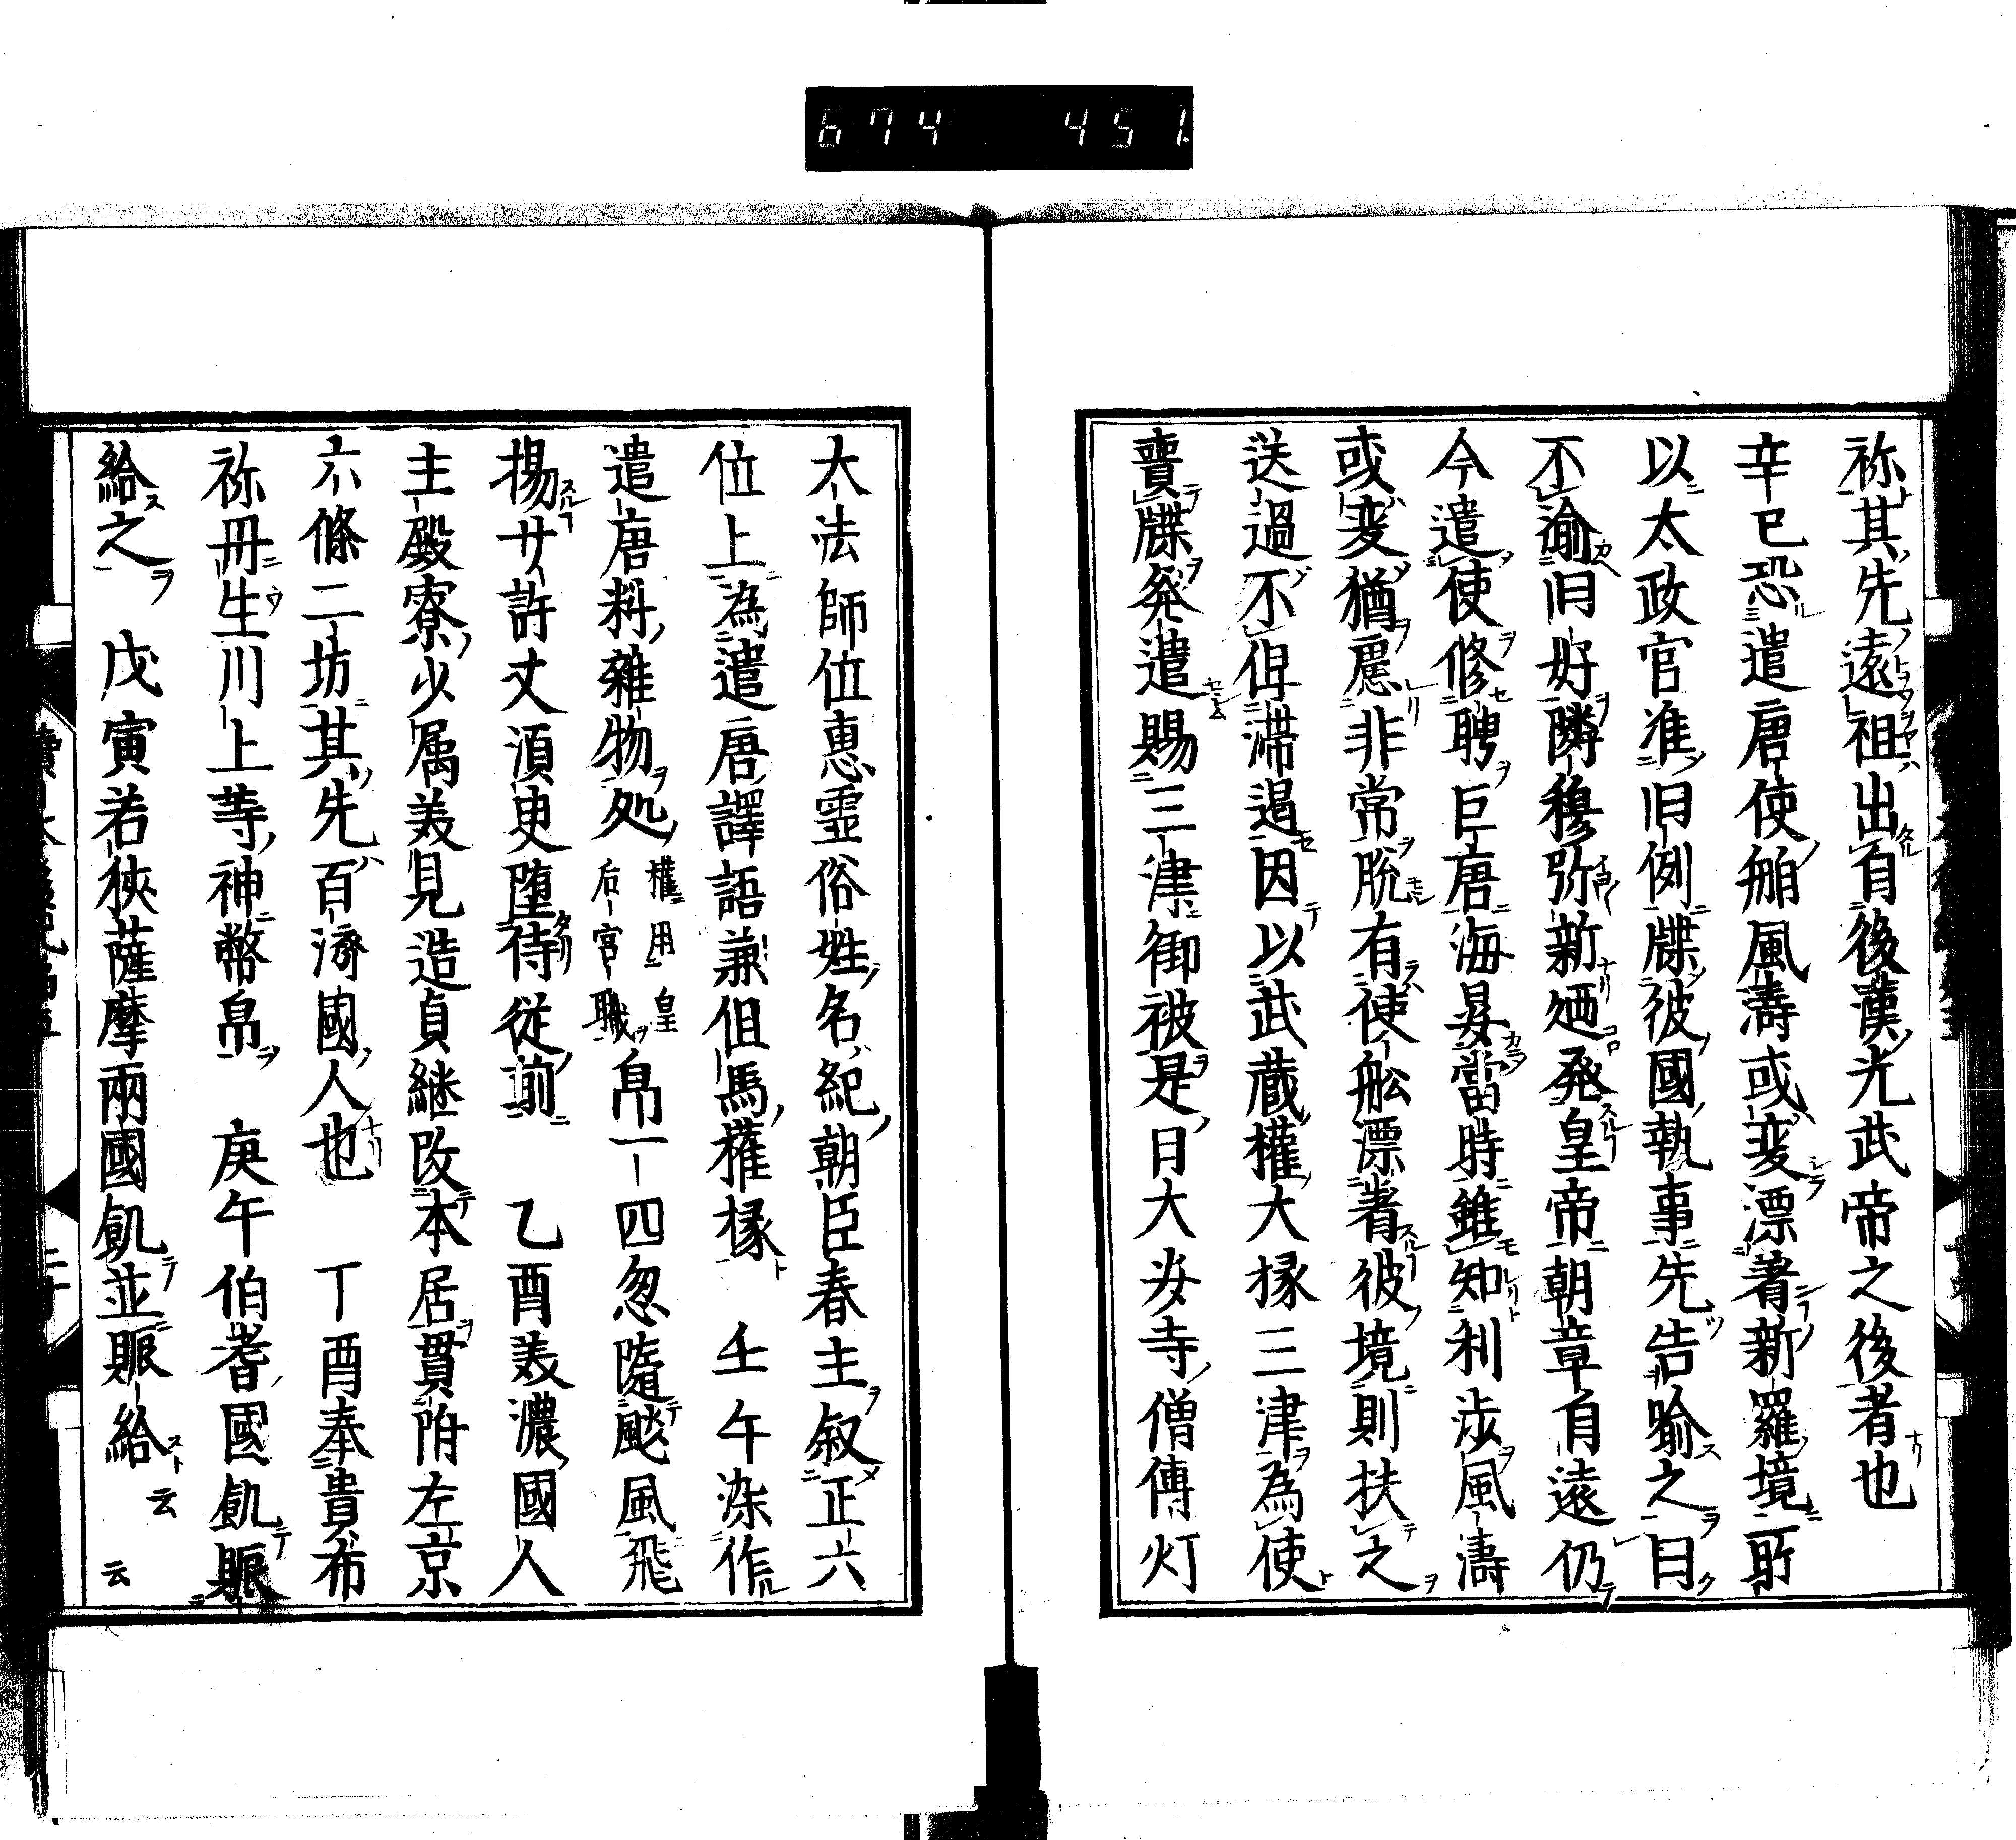 674 451
祢其先遠祖出自後漢光武帝之後者也
辛巳恐遣唐使舶風濤或変漂着新羅境所
以太政官准旧例牒彼國執事先告喻之曰
不渝旧好隣穆弥新廼発皇帝朝章自遠仍
今遣使修聘巨唐海晏當時雖知利渉風濤
或変猶慮非常脱有使舩漂着彼境則扶之
送過不俾滞遏因以武蔵權大掾三津為使
賷牒発遣賜三津御被是日大安寺僧傳灯
大法師位恵霊俗姓名紀朝臣春主叙正六
位上為遣唐譯語兼但馬權掾 壬午染作
遣唐料雜物処權用皇后宮職帛一四忽隨颷風飛
揚廿許丈湏臾堕侍從前 乙酉羙濃國人
主殿寮少属羙見造貞継改本居貫附左京
六條二坊其先百濟國人也 丁酉奉貴布
祢丹生川上等神幣帛 庚午伯耆國飢賑
給之 戊寅若狹薩摩兩國飢並賑給云云